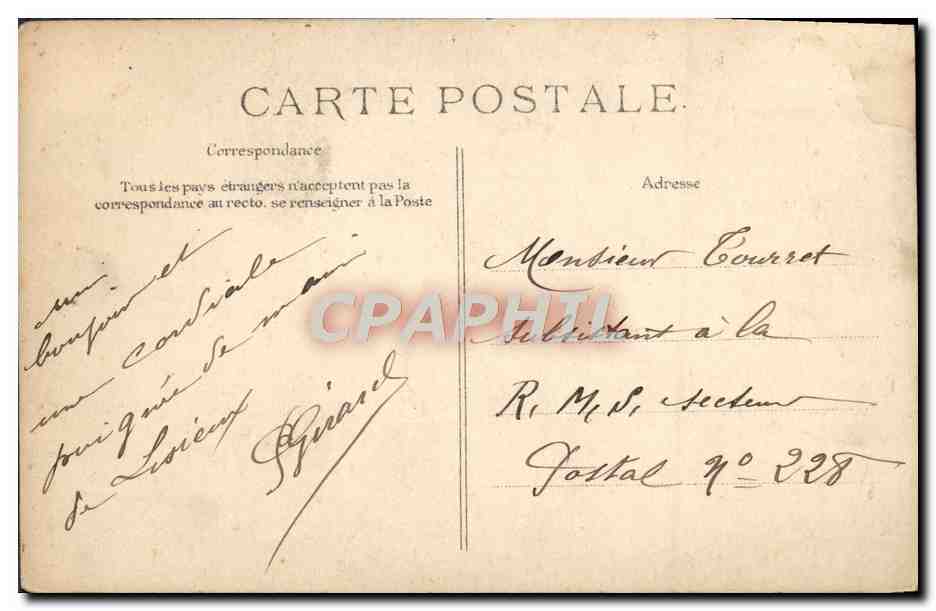 CARTE POSTALE.
Correspondance
Tous les pays étrangers n'acceptent pas la
correspondance au recto. se renseigner à la Poste
un
bonjour et
une cordiale
poignée de main
de Lisieux
Girard
Adresse
Monsieur Tourret
subsistant à la
R. M. S. secteur
Postal nº 228
CPAPHIL